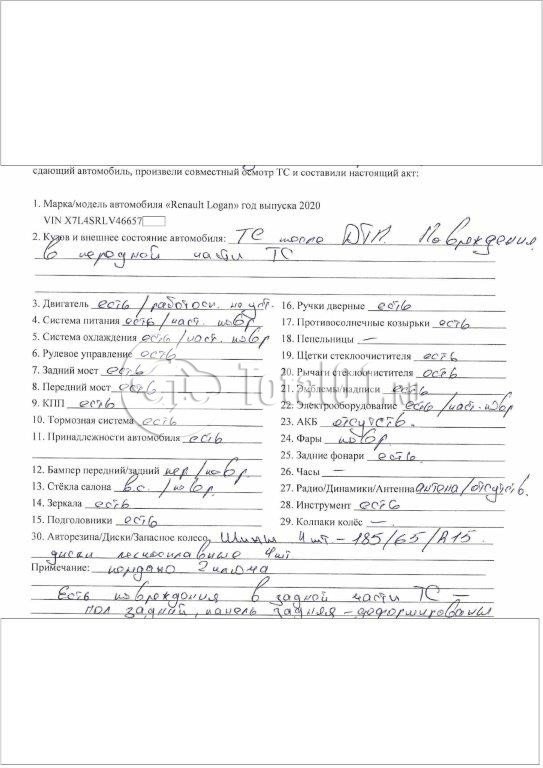 сдающий автомобиль, произвели совместный осмотр ТС и составили настоящий акт:
1. Марка/модель автомобиля «Renault Logan» год выпуска 2020
VIN X7L4SRLV46657
2. Кузов и внешнее состояние автомобиля: ТС после ДТП. Повреждения
в передней части ТС
3. Двигатель есть / работосп. не уст.
4. Система питания есть / част. повр
5. Система охлаждения есть / част. повр
6. Рулевое управление есть
7. Задний мост есть
8. Передний мост есть
9. КПП есть
10. Тормозная система есть
11. Принадлежности автомобиля есть
12. Бампер передний/задний пер / повр
13. Стёкла салона в.с. / повр.
14. Зеркала есть
15. Подголовники есть
16. Ручки дверные есть
17. Противосолнечные козырьки есть
18. Пепельницы —
19. Щетки стеклоочистителя есть
20. Рычаги стеклоочистителя есть
21. Эмблемы/надписи есть
22. Электрооборудование есть / част. повр
23. АКБ отсутств.
24. Фары повр.
25. Задние фонари есть
26. Часы —
27. Радио/Динамики/Антенна антена / отсутств.
28. Инструмент есть
29. Колпаки колёс —
30. Авторезина/Диски/Запасное колесо, Шины 4 шт – 185/65/R15
диски легкосплавные 4 шт
Примечание: передано 2 ключа
Есть повреждения в задней части ТС —
пол задний, панель задняя – деформированы